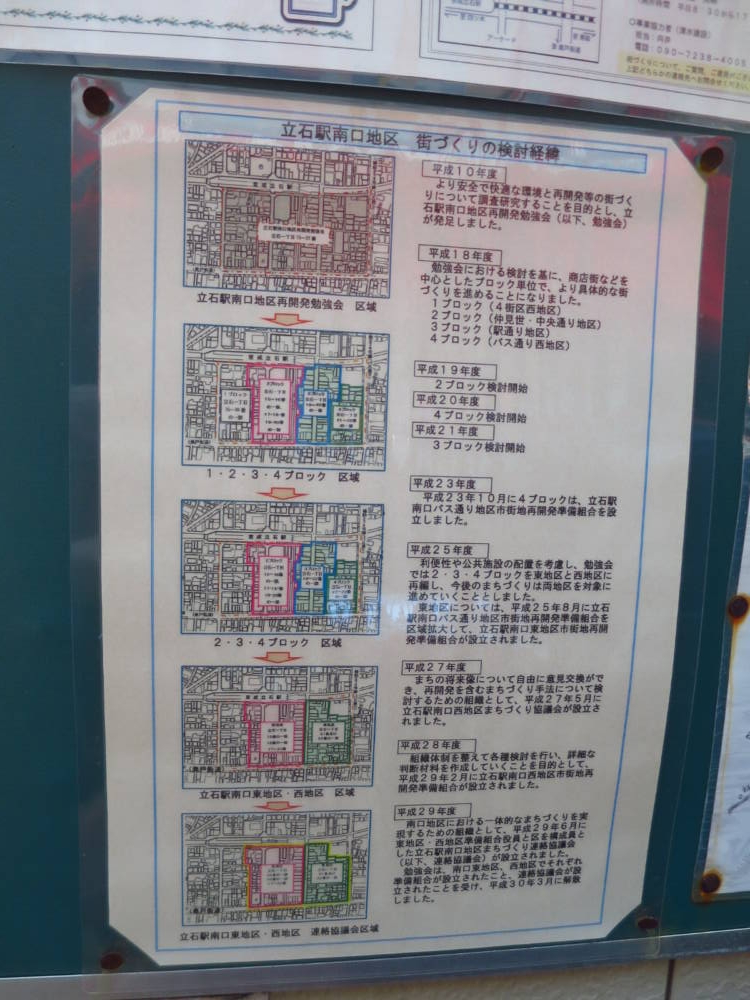 アーケード
◎事業協力者(清水建設)
担当：向井
立石駅南口地区　街づくりの検討経緯
立石駅南口地区再開発勉強会　区域
1・2・3・4ブロック　区域
2・3・4ブロック　区域
立石駅南口東地区・西地区　区域
立石駅南口東地区・西地区　連絡協議会区域
平成10年度
より安全で快適な環境と再開発等の街づく
りについて調査研究することを目的とし、立
石駅南口地区再開発勉強会(以下、勉強会)
が発足しました。
平成18年度
勉強会における検討を基に、商店街などを
中心としたブロック単位で、より具体的な街
づくりを進めることになりました。
1ブロック(4街区西地区)
2ブロック(仲見世・中央通り地区)
3ブロック(駅通り地区)
4ブロック(バス通り西地区)
平成19年度
2ブロック検討開始
平成20年度
4ブロック検討開始
平成21年度
3ブロック検討開始
平成23年度
平成23年10月に4ブロックは、立石駅
南口バス通り地区市街地再開発準備組合を設
立しました。
平成25年度
利便性や公共施設の配置を考慮し、勉強会
では2・3・4ブロックを東地区と西地区に
再編し、今後のまちづくりは両地区を対象に
進めていくこととしました。
東地区については、平成25年8月に立石
駅南口バス通り地区市街地再開発準備組合を
区域拡大して、立石駅南口東地区市街地再開
発準備組合が設立されました。
平成27年度
まちの将来像について自由に意見交換がで
き、再開発を含むまちづくり手法について検
討するための組織として、平成27年5月に
立石駅南口西地区まちづくり協議会が設立さ
れました。
平成28年度
組織体制を整えて各種検討を行い、詳細な
判断材料を作成していくことを目的として、
平成29年2月に立石駅南口西地区市街地再
開発準備組合が設立されました。
平成29年度
南口地区における一体的なまちづくりを実
現するための組織として、平成29年6月に
東地区・西地区準備組合役員と区を構成員と
した立石駅南口地区まちづくり連絡協議会
(以下、連絡協議会)が設立されました。
勉強会は、南口東地区、西地区でそれぞれ
準備組合が設立されたこと、連絡協議会が設
立されたことを受け、平成30年3月に解散
しました。